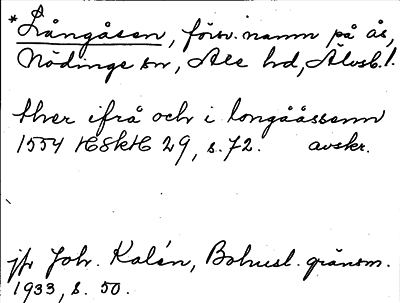 *Långåsen, försv. namn på ås,
Nödinge sn, Ale hd, Älvsb. l.
thær ifrå och i longååssenn
1554 HSkH 29, s. 72. avskr.
jfr Joh. Kalén, Bohusl. gränsm.
1933, s. 50.